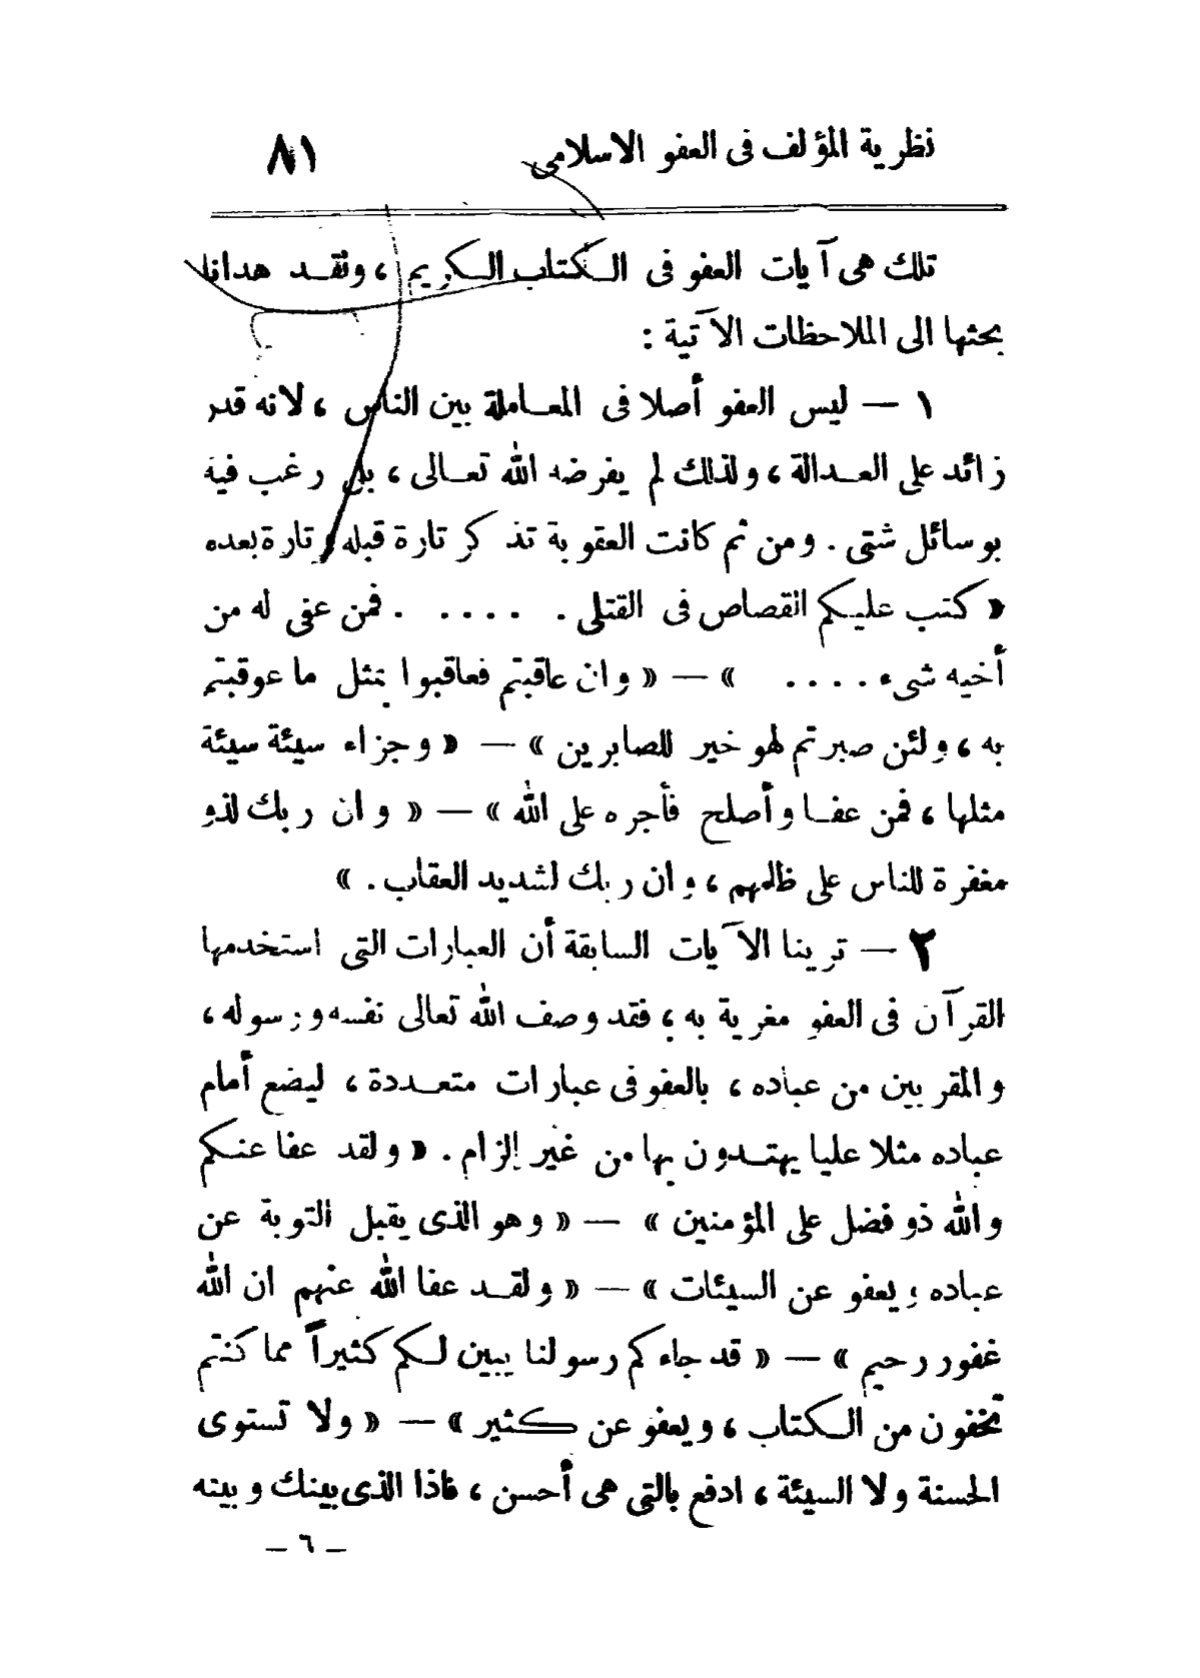 نظرية المؤلف فى العفو الاسلامى ٨١
تلك هى آيات العفو فى الكتاب الكريم ، ولقد هدانا
بحثها الى الملاحظات الآتية :
١ — ليس العفو أصلا فى المعاملة بين الناس ، لانه قدر
زائد على العدالة ، ولذلك لم يفرضه الله تعالى ، بل رغب فيه
بوسائل شتى . ومن ثم كانت العقوبة تذكر تارة قبله وتارة بعده
« كتب عليكم القصاص فى القتلى . . . . . فمن عفى له من
أخيه شىء . . . . » — « وان عاقبتم فعاقبوا بمثل ما عوقبتم
به ، ولئن صبرتم لهو خير للصابرين » — « وجزاء سيئة سيئة
مثلها ، فمن عفا وأصلح فأجره على الله » — « وان ربك لذو
مغفرة للناس على ظلمهم ، وان ربك لشديد العقاب . »
٢ — ترينا الآيات السابقة أن العبارات التى استخدمها
القرآن فى العفو مغرية به ، فقد وصف الله تعالى نفسه ورسوله ،
والمقربين من عباده ، بالعفو فى عبارات متعددة ، ليضع أمام
عباده مثلا عليا يهتدون بها من غير إلزام . « ولقد عفا عنكم
والله ذو فضل على المؤمنين » — « وهو الذى يقبل التوبة عن
عباده ويعفو عن السيئات » — « ولقد عفا الله عنهم ان الله
غفور رحيم » — « قد جاءكم رسولنا يبين لكم كثيراً مما كنتم
تخفون من الكتاب ، ويعفو عن كثير » — « ولا تستوى
الحسنة ولا السيئة ، ادفع بالتى هى أحسن ، فاذا الذى بينك وبينه
— ٦ —